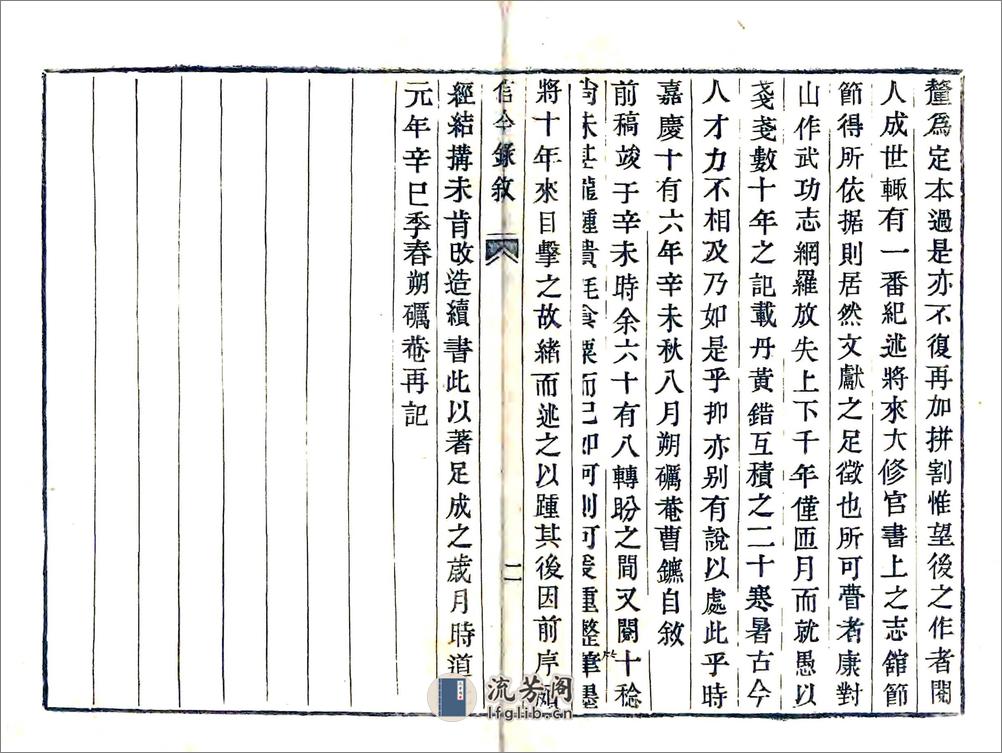 釐爲定本過是亦不復再加拼割惟望後之作者閱
人成世輙有一番紀述將來大修官書上之志舘節
節得所依据則居然文獻之足徵也所可瞢者康對
山作武功志網羅放失上下千年僅匝月而就愚以
戔戔數十年之記載丹黃錯互積之二十寒暑古今
人才力不相及乃如是乎抑亦别有說以處此乎時
嘉慶十有六年辛未秋八月朔礪菴曹鑣自敘
前稿竣于辛未時余六十有八轉盼之間又閱十稔
尚未甚龍鍾貴耗食粟而已即何則可爰重整筆墨
將十年來目擊之故緒而述之以踵其後因前序
信今錄敘
二
經結搆未肯改造續書此以著足成之歲月時道
元年辛巳季春朔礪菴再記
流芳阁
lfglib.cn